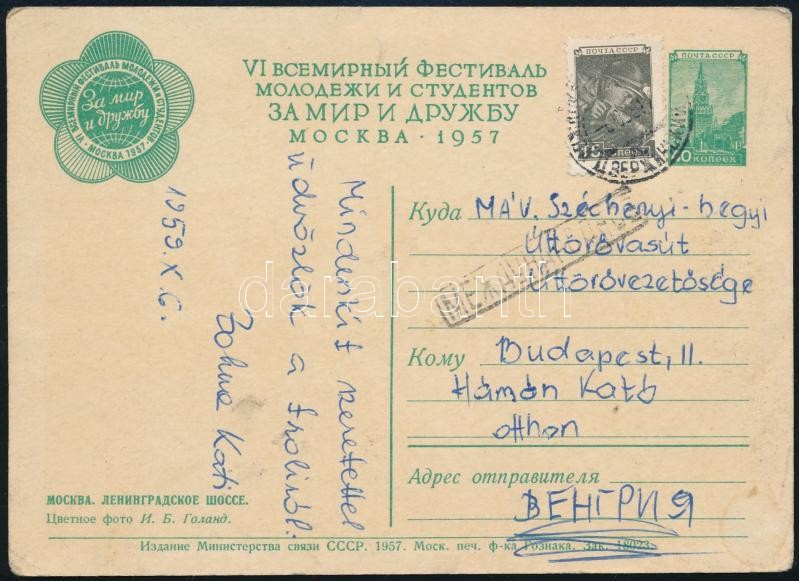 VI ВСЕМИРНЫЙ ФЕСТИВАЛЬ МОЛОДЕЖИ И СТУДЕНТОВ
МОСКВА · 1957
За мир
и дружбу
VI ВСЕМИРНЫЙ ФЕСТИВАЛЬ
МОЛОДЕЖИ И СТУДЕНТОВ
ЗА МИР И ДРУЖБУ
МОСКВА · 1957
ПОЧТА СССР
ПОЧТА СССР
КОПЕЕК
Куда MÁV. Széchenyi-hegyi
Úttörővasút
Úttörővezetősége
Кому Budapest, II.
Hámán Kató
otthon
Адрес отправителя
ВЕНГРИЯ
Mindenkit szeretettel
üdvözlök a
Kati
1959. X. 6.
darabanth
МОСКВА. ЛЕНИНГРАДСКОЕ ШОССЕ.
Цветное фото И. Б. Голанд.
Издание Министерства связи СССР. 1957. Моск. печ. ф-ка Гознака. Зак. 18023.